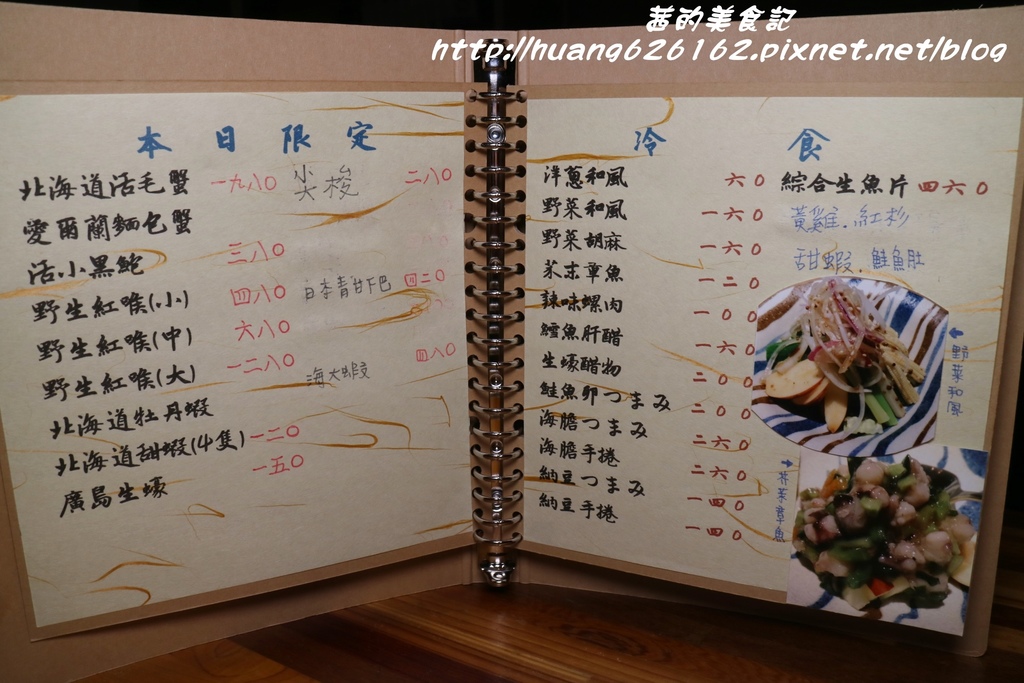 茜的美食記
http://huang626162.pixnet.net/blog
本日限定
北海道活毛蟹 一九八〇
愛爾蘭麵包蟹
活小黑鮑 三八〇
野生紅喉(小) 四八〇
野生紅喉(中) 六八〇
野生紅喉(大) 一二八〇
北海道牡丹蝦
北海道甜蝦(4隻) 一二〇
廣島生蠔 一五〇
尖梭 二八〇
青甘下巴 四二〇
海大蝦 四八〇
冷食
洋蔥和風 六〇
野菜和風 一六〇
野菜胡麻 一六〇
芥末章魚 一二〇
辣味螺肉 一００
鱈魚肝醋 一六〇
生蠔醋物 二００
鮭魚卵つまみ 二００
海膽つまみ 二六〇
海膽手捲 二六〇
納豆つまみ 一四〇
納豆手捲 一四〇
綜合生魚片 四六〇
黃雞.紅杉
甜蝦.鮭魚肚
野菜和風
芥茉章魚